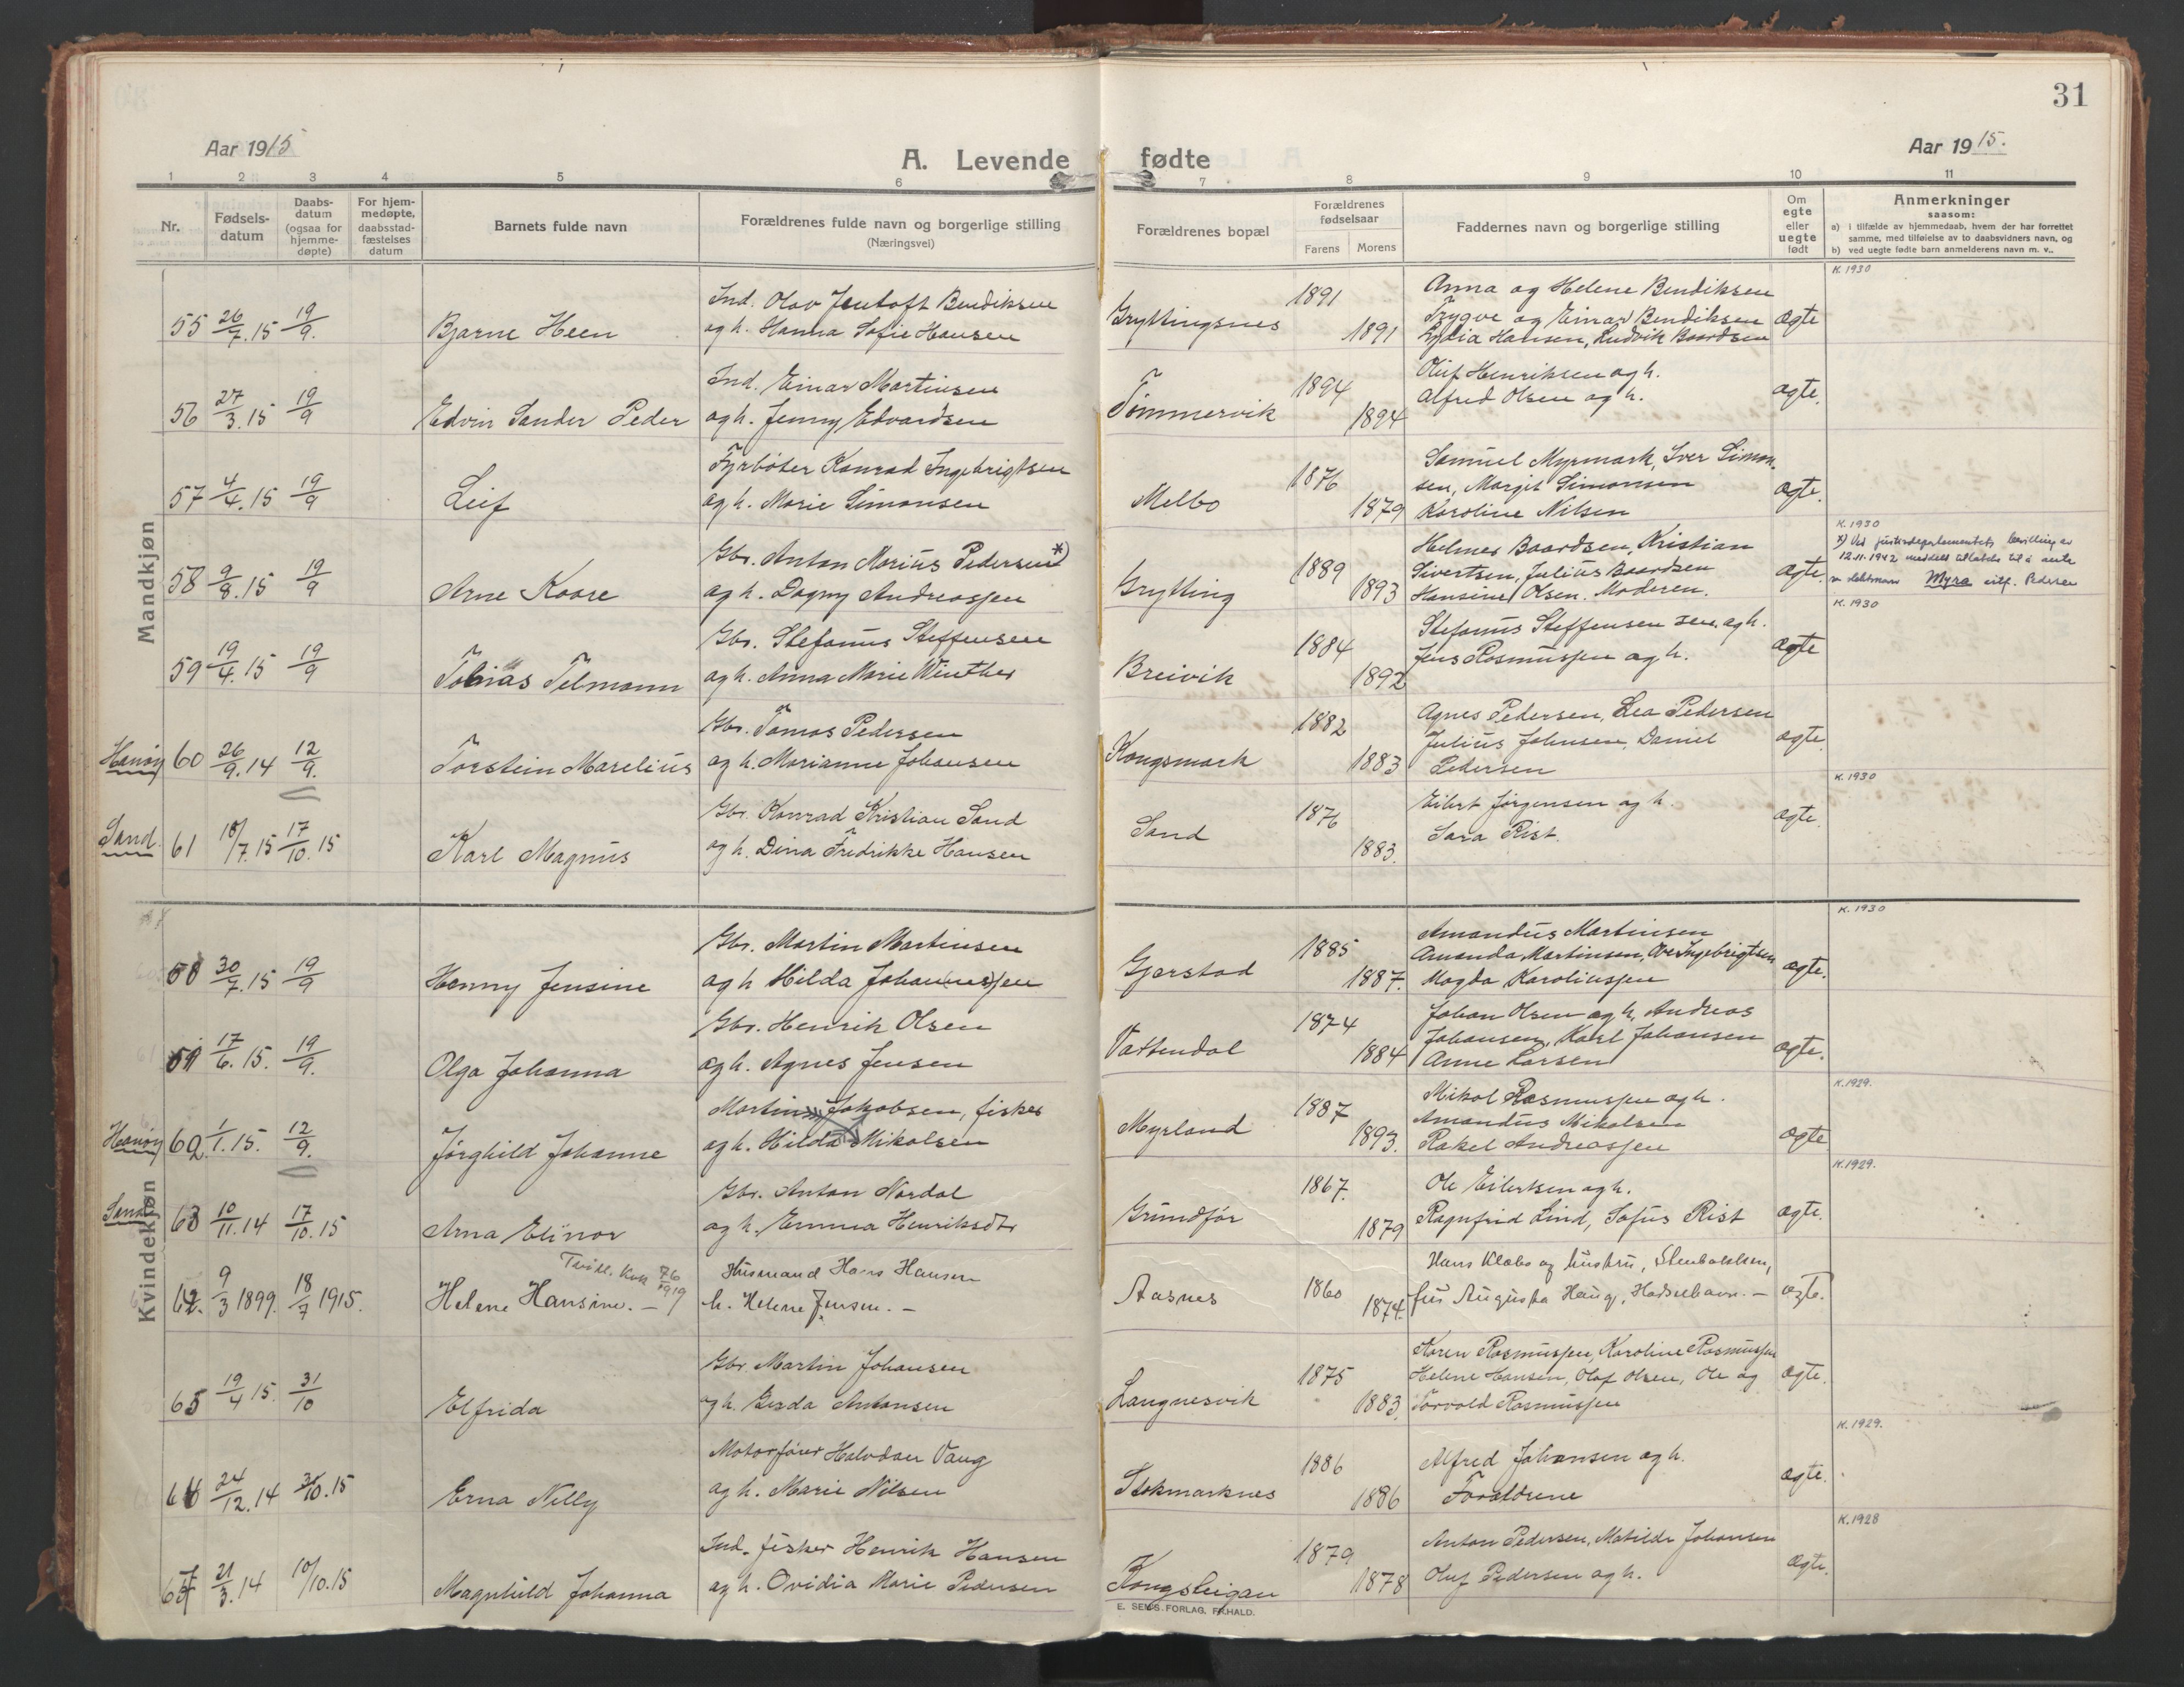 31
Aar 1915
A. Levende fødte
Aar 1915.
1 2 3 4 5 6 7 8 9 10 11
Nr.
Fødsels-
datum
Daabs-
datum
(ogsaa for
hjemme-
døpte)
For hjem-
medøpte,
daabsstad-
fæstelses
datum
Barnets fulde navn
Forældrenes fulde navn og borgerlige stilling
(Næringsvei)
Forældrenes bopæl
Forældrenes
fødselsaar
Farens Morens
Faddernes navn og borgerlige stilling
Om
egte
eller
uegte
født
Anmerkninger
saasom:
a) i tilfælde av hjemmedaab, hvem der har forrettet
samme, med tilføielse av to daabsvidners navn, og
b) ved uegte fødte barn anmelderens navn m. v..
Mandkjøn
K. 1930
Ind. Olav Jentoft Bendiksen 1891 Anna og Helene Bendiksen
55 26/7.15 19/9. Bjarne Heen og h. Hanna Sofie Hansen Gryttingsnes 1891 Trygve og Einar Bendiksen ægte
Lydia Hansen, Ludvik Baardsen
Ind. Einar Martinsen 1894 Oluf Henriksen og h.
56 27/3.15 19/9 Edvin Sander Peder og h. Jenny Edvardsen Tømmervik 1894 Alfred Olsen og h. ægte.
Fyrbøter Konrad Ingebrigtsen 1876 Samuel Myrmark, Iver Simon-
57 4/4.15 19/9 Leif og h. Marie Simonsen Melbo 1879 sen, Margit Simonsen ægte.
Karoline Nilsen
K. 1930
Gbr. Anton Marius Pedersen *) 1889 Helmer Baardsen, Kristian
58 9/8.15 19/9 Arne Kaare og h. Dagny Andreassen Grytting 1893 Sivertsen, Julius Baardsen ægte.
Hansine Olsen. Moderen.
*) Ved justisdepartementets bevilling av
12.11.1942 meddelt tillatelse til å anta
slektsnavn Myra istf. Pedersen
K. 1930
Gbr. Stefanus Steffensen 1884 Stefanus Steffensen sen. og h.
59 19/4.15 19/9 Tobias Telmann og h. Anna Marie Winther Breivik 1892 Jens Rasmussen og h. ægte
Gbr. Tomas Pedersen 1882 Agnes Pedersen, Lea Pedersen
Hanøy 60 26/9.14 12/9. Torstein Marelius og h. Marianne Johansen Kongsmark 1883 Julius Johnsen, Daniel ægte
Pedersen
K. 1930
Gbr. Konrad Kristian Sand 1876 Eilert Jørgensen og h.
Sand. 61 18/7.15 17/10.15 Karl Magnus og h. Dina Fredrikke Hansen Sand 1883. Sara Rist. ægte.
Kvindekjøn
K. 1930
Gbr. Martin Martinsen 1885 Amandus Martinsen
58 30/7.15 19/9 Henny Jensine og h Hilda Johannessen Gjerstad 1887. Amanda Martinsen, Ove Ingebrigtsen ægte.
Magda Karoliussen
Gbr. Henrik Olsen 1874 Johan Olsen og h, Andreas
17/6.15. 19/9. Olga Johanna og h. Agnes Jensen Vattendal 1884 Johansen, Karl Johansen ægte.
Anne Larsen
K. 1929.
Martin Jakobsen, fisker 1887 Mikal Rasmussen og h.
Hanøy 60 1/1.15. 12/9. Jørghild Johanne og h. Hilda Mikalsen Myrland 1893. Amandus Mikalsen ægte
Rakel Andreassen
K. 1929.
Gbr. Anton Nordal 1867. Ole Eilertsen og h.
Sand 63 10/11.14 17/10.15 Arna Elinor og h. Emma Henriksdtr Grundfør 1879 Ragnfrid Lind, Sofus Rist ægte.
9/3 1899. 18/7 1915. Helene Hansine. — Husmand Hans Hansen h. Helene Jensen. — Aasnes 1860 1874. Hans Klæbo og hustru, fru Augusta Haug, Hadselhavn. — ægte.
Gbr Martin Johansen 1875 Karen Rasmussen, Karoline Rasmussen
65 19/4 15. 31/10 Elfrida og h. Gerda Antonsen Langnesvik 1883. Helene Hansen, Olaf Olsen, Ole og ægte.
Torvald Rasmussen
K. 1929.
Motorfører Halvdan Vaug 1886 Alfred Johansen og h.
24/12.14 31/10.15 Erna Nelly og h. Marie Nilsen Stokmarknes 1886 Forældrene ægte.
K. 1928
Ind. fisker Henrik Hansen 1879 Anton Pedersen, Matilde Johansen
67 21/3.14 10/10.15 Magnhild Johanna og h. Ovidia Marie Pedersen 1878 Oluf Pedersen og h. ægte.
E. SEM'S FORLAG, FR.HALD.